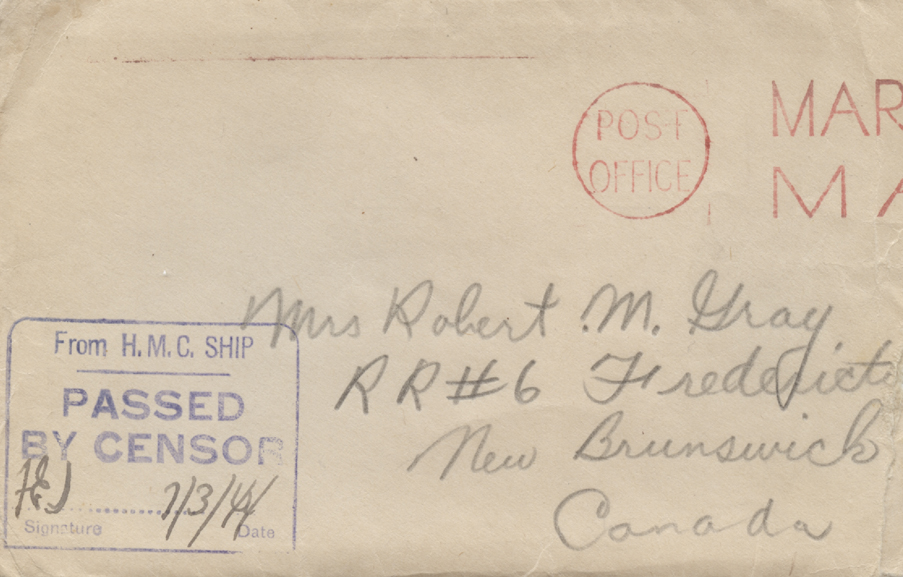 POST
OFFICE
MAR
MA
Mrs Robert M. Gray
RR#6 Fredericto
New Brunswick
Canada
From H.M.C. SHIP
PASSED
BY CENSOR
7/3/44
Signature Date